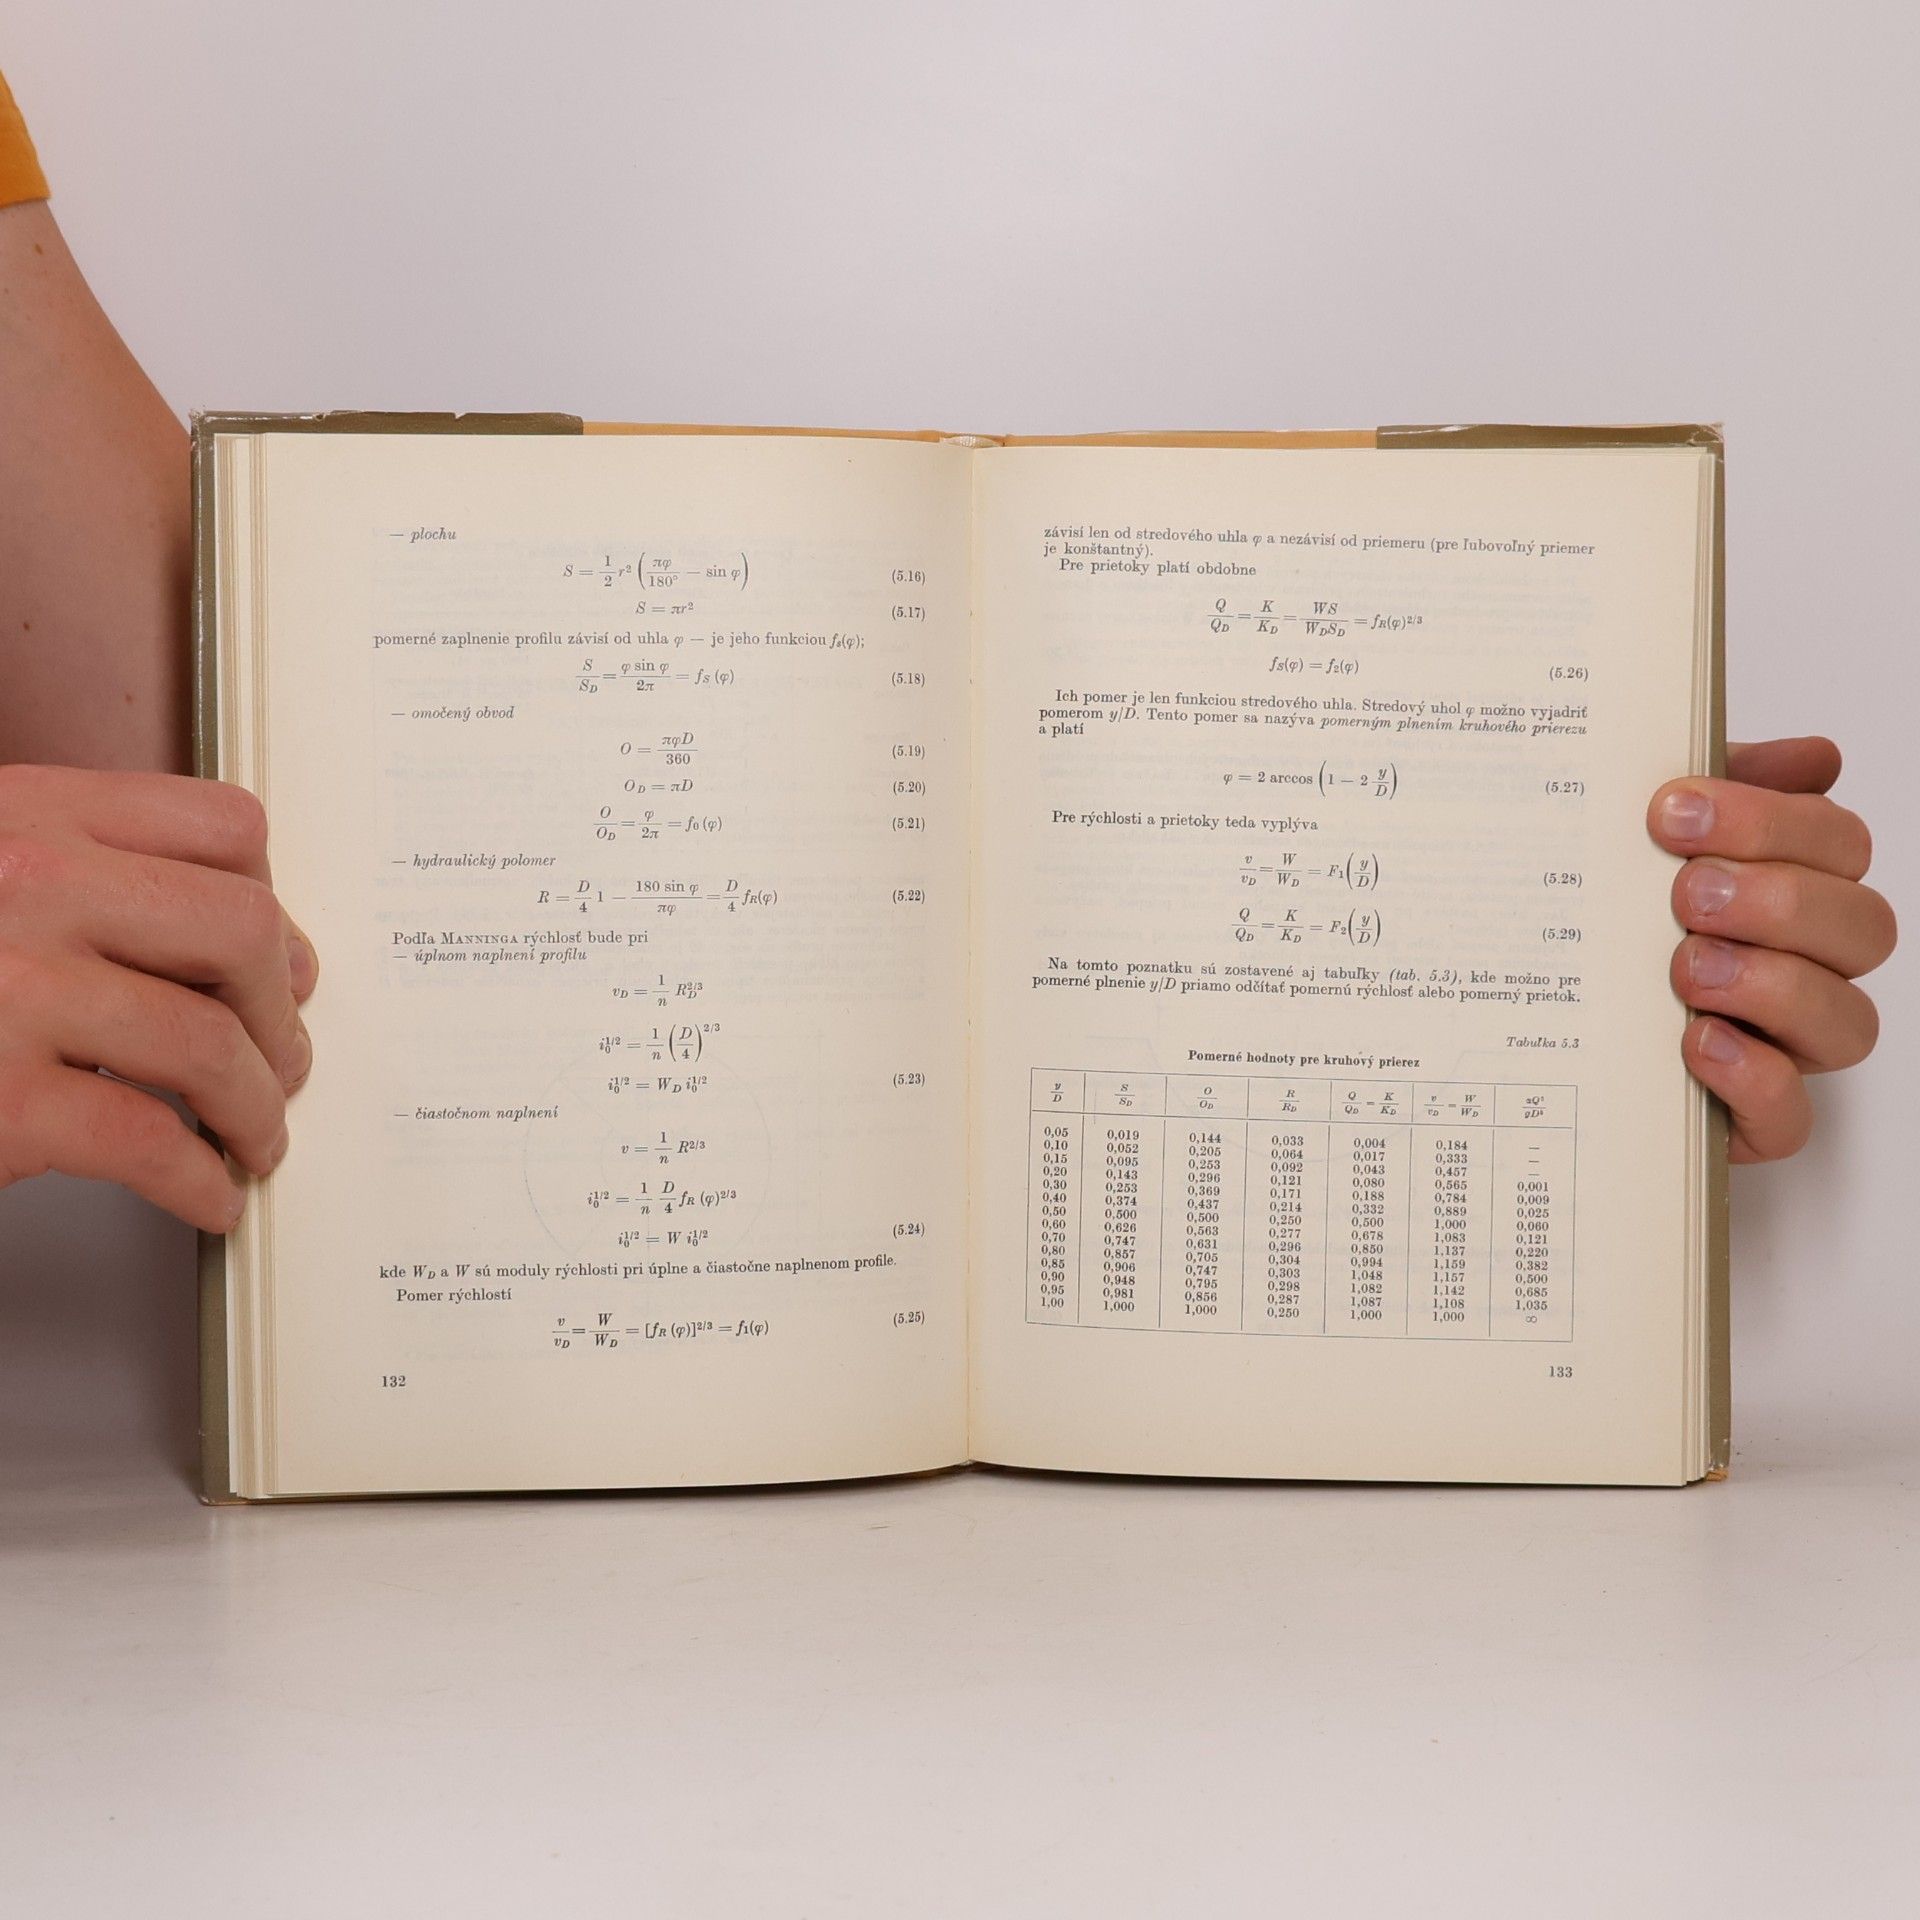 — plochu
S = 1/2 r² (πφ/180° — sin φ) (5.16)
S = πr² (5.17)
pomerné zaplnenie profilu závisí od uhla φ — je jeho funkciou fₛ(φ);
S/S_D = φ sin φ/2π = f_S (φ) (5.18)
— omočený obvod
O = πφD/360 (5.19)
O_D = πD (5.20)
O/O_D = φ/2π = f₀ (φ) (5.21)
— hydraulický polomer
R = D/4 1 — 180 sin φ/πφ = D/4 f_R(φ) (5.22)
Podľa MANNINGA rýchlosť bude pri
— úplnom naplnení profilu
v_D = 1/n R_D^2/3
i₀^1/2 = 1/n (D/4)^2/3
i₀^1/2 = W_D i₀^1/2 (5.23)
— čiastočnom naplnení
v = 1/n R^2/3
i₀^1/2 = 1/n D/4 f_R (φ)^2/3
i₀^1/2 = W i₀^1/2 (5.24)
kde W_D a W sú moduly rýchlosti pri úplne a čiastočne naplnenom profile.
Pomer rýchlostí
v/v_D = W/W_D = [f_R (φ)]^2/3 = f₁(φ) (5.25)
132
závisí len od stredového uhla φ a nezávisí od priemeru (pre ľubovoľný priemer
je konštantný).
Pre prietoky platí obdobne
Q/Q_D = K/K_D = WS/W_D S_D = f_R(φ)^2/3
f_S(φ) = f₂(φ) (5.26)
Ich pomer je len funkciou stredového uhla. Stredový uhol φ možno vyjadriť
pomerom y/D. Tento pomer sa nazýva pomerným plnením kruhového prierezu
a platí
φ = 2 arccos (1 — 2 y/D) (5.27)
Pre rýchlosti a prietoky teda vyplýva
v/v_D = W/W_D = F₁(y/D) (5.28)
Q/Q_D = K/K_D = F₂(y/D) (5.29)
Na tomto poznatku sú zostavené aj tabuľky (tab. 5.3), kde možno pre
pomerné plnenie y/D priamo odčítať pomernú rýchlosť alebo pomerný prietok.
Tabuľka 5.3
Pomerné hodnoty pre kruhový prierez
y/D S/S_D O/O_D R/R_D Q/Q_D = K/K_D v/v_D = W/W_D
0,05 0,019 0,144 0,033 0,004 0,184 —
0,10 0,052 0,205 0,064 0,017 0,333 —
0,15 0,095 0,253 0,092 0,043 0,457 —
0,20 0,143 0,296 0,121 0,080 0,565 0,001
0,30 0,253 0,369 0,171 0,188 0,784 0,009
0,40 0,374 0,437 0,214 0,332 0,889 0,025
0,50 0,500 0,500 0,250 0,500 1,000 0,060
0,60 0,626 0,563 0,277 0,678 1,083 0,121
0,70 0,747 0,631 0,296 0,850 1,137 0,220
0,80 0,857 0,705 0,304 0,994 1,159 0,382
0,85 0,906 0,747 0,303 1,048 1,157 0,500
0,90 0,948 0,795 0,298 1,082 1,142 0,685
0,95 0,981 0,856 0,287 1,087 1,108 1,035
1,00 1,000 1,000 0,250 1,000 1,000 ∞
133